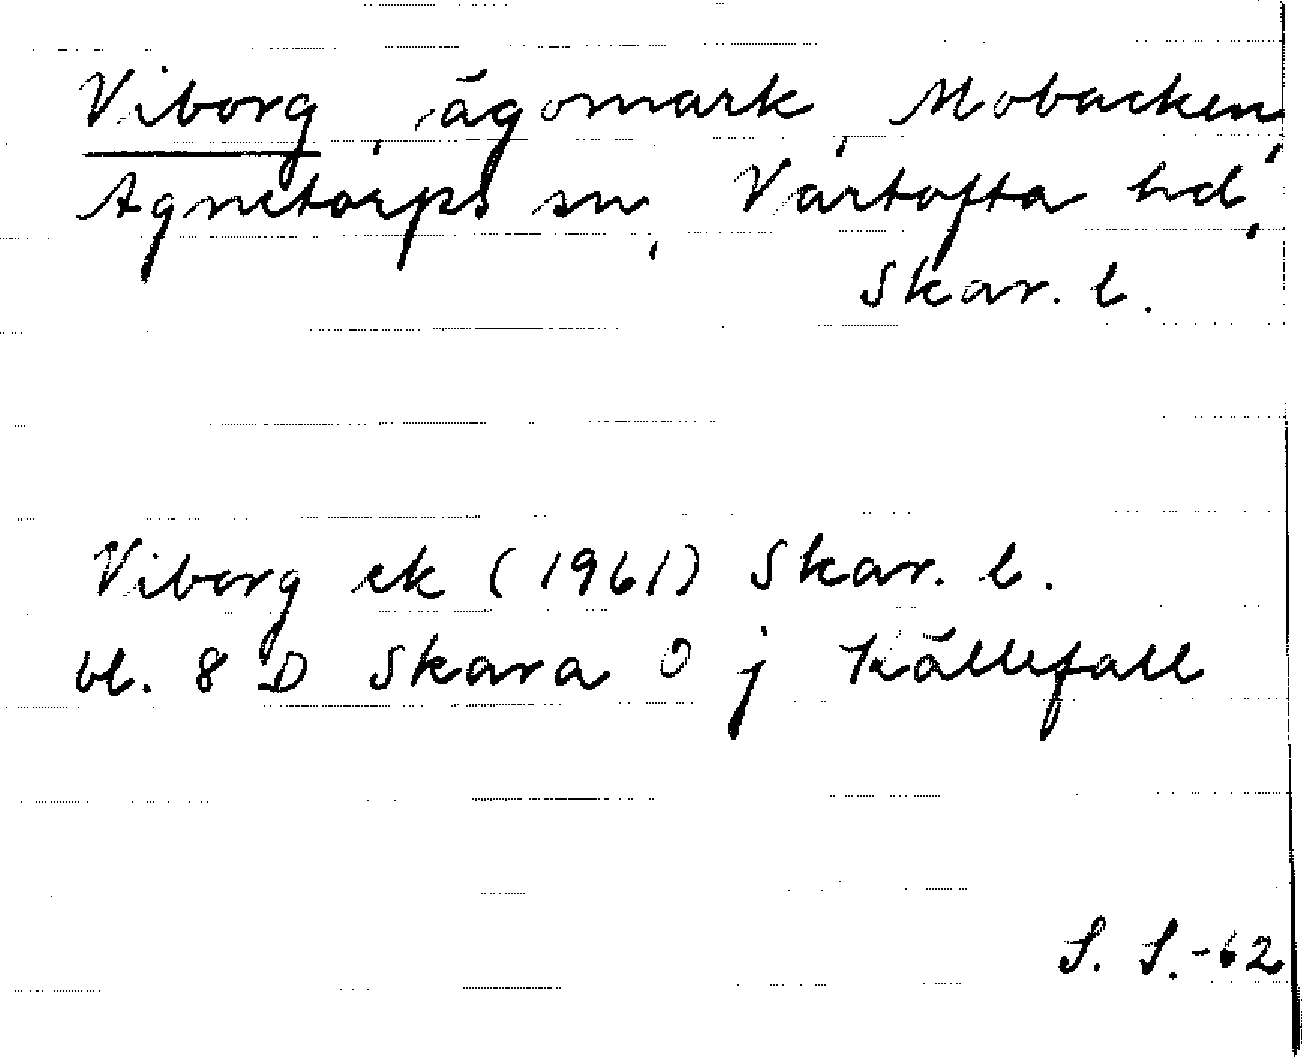 Viborg, ägomark, Mobacken,
Agnetorps sn, Vartofta hd,
Skar. l.
Viborg ek (1961) Skar. l.
bl. 8 D Skara O j Källefall
S. S.-62